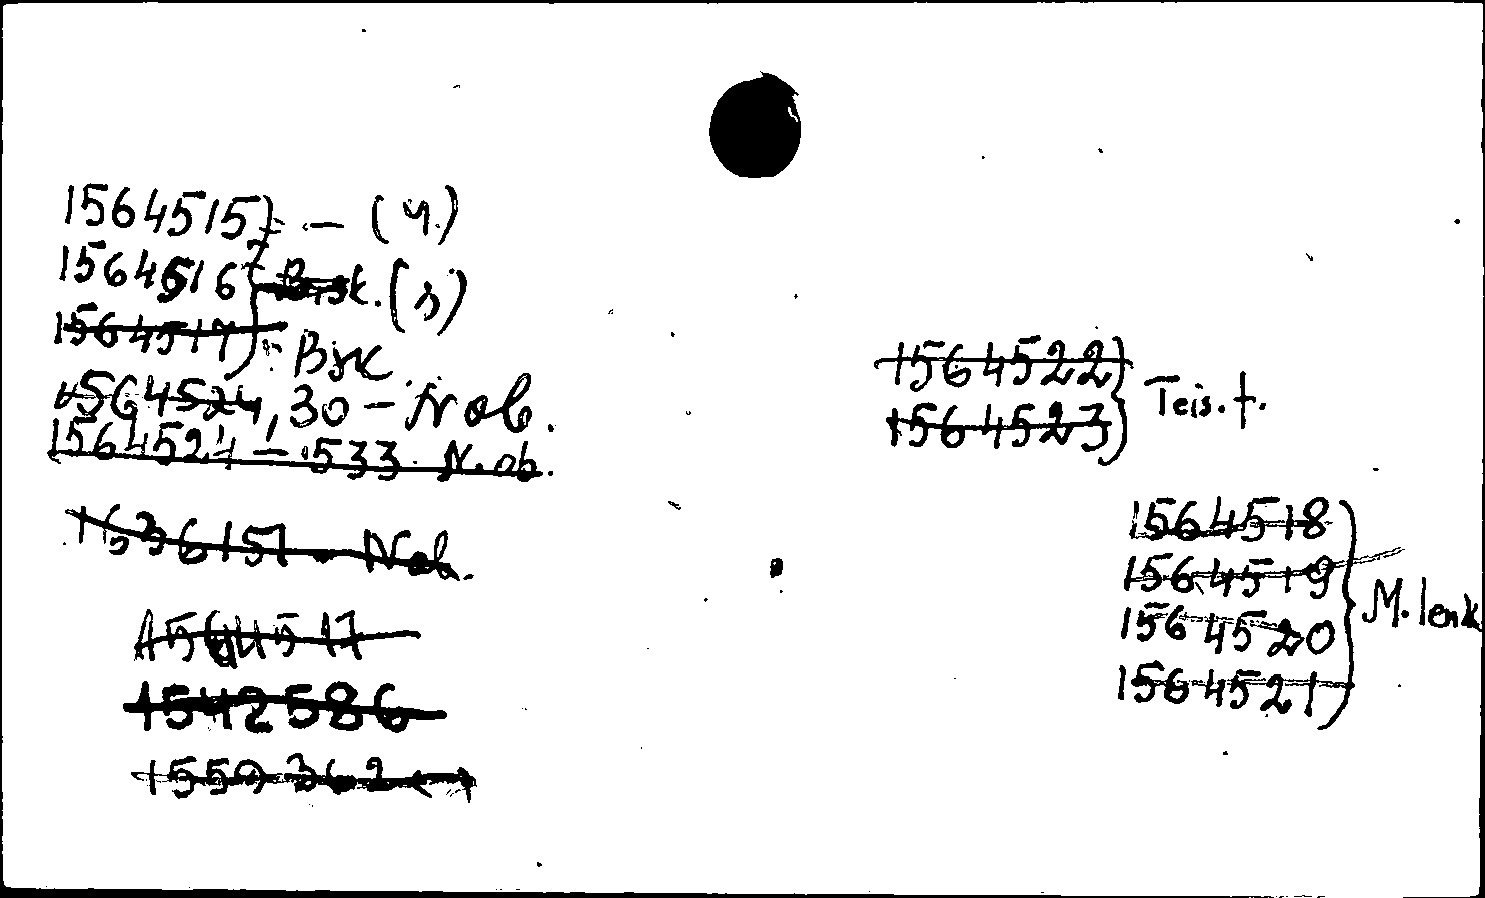 1564515 } - (ч.)
1564516 } Bisk. (з)
1564517 } - Bsk
1564524, 30 - N ob.
1564524 - 533 N. ob.
1636151 - Nob.
1564517
1542586
1550362
1564522 }
1564523 } Teis. t.
1564518
1564519
1564520 } M. lenk
1564521